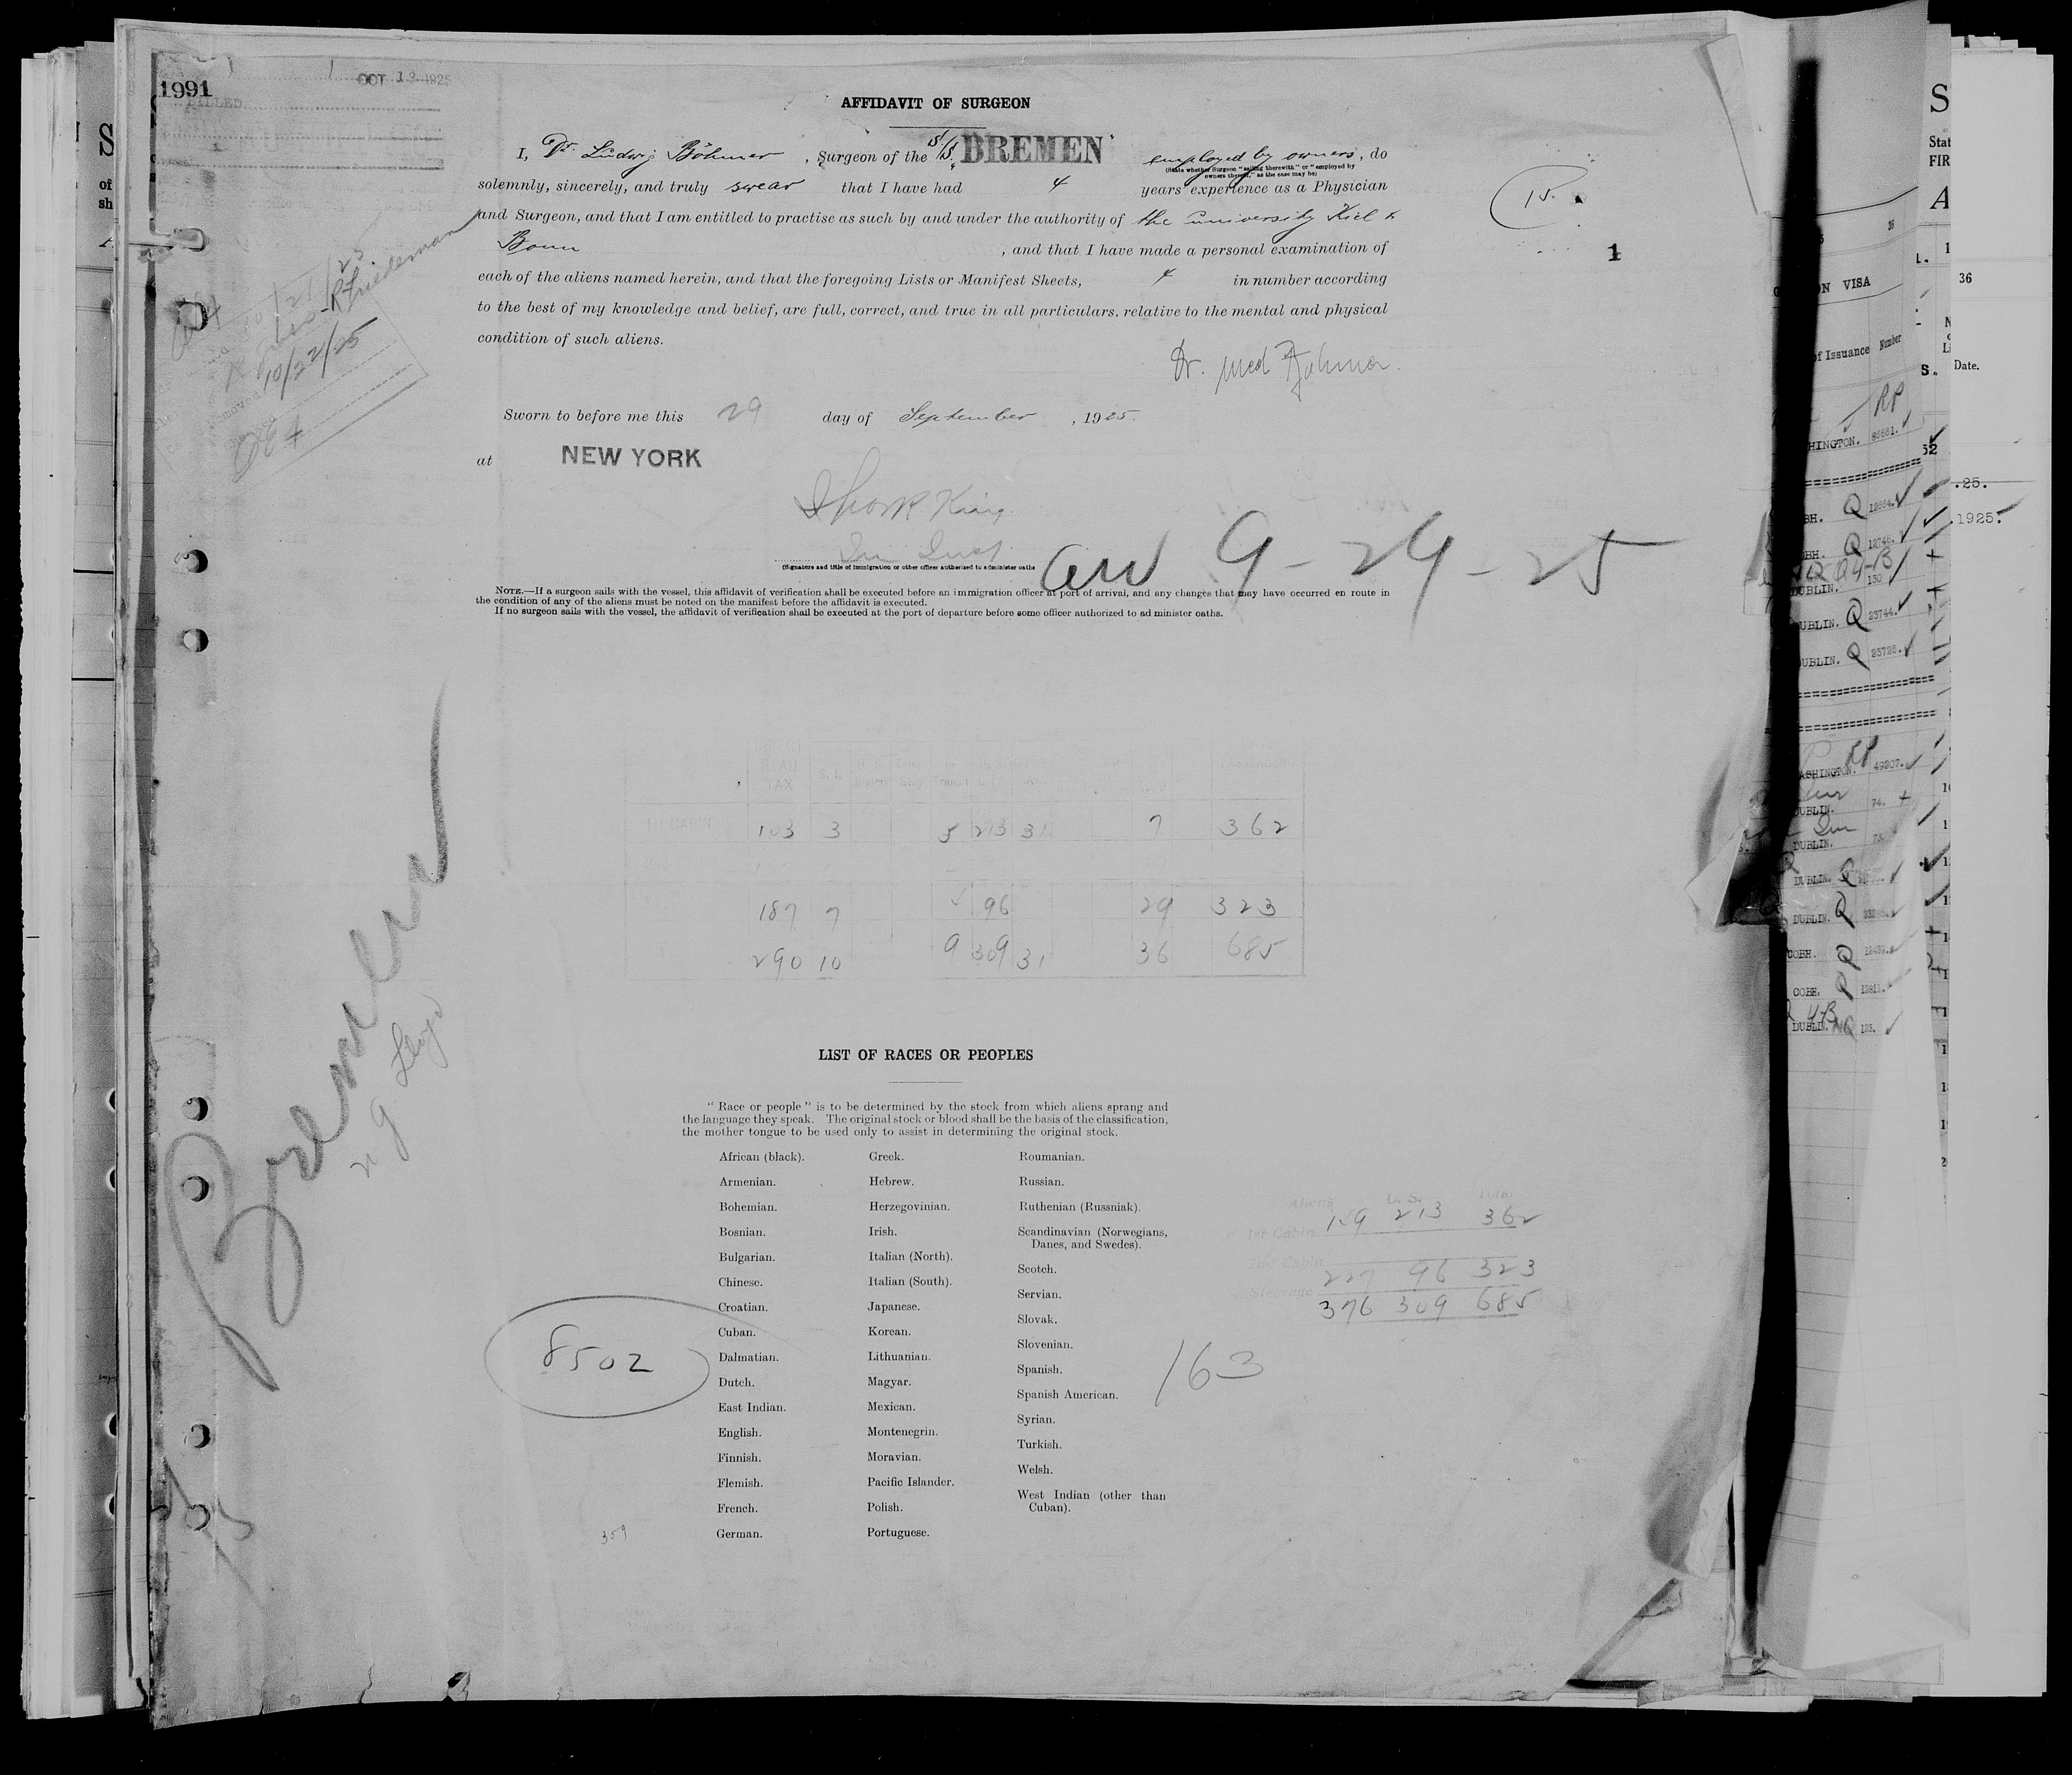 1991
OCT 13 1925
BILLED
AFFIDAVIT OF SURGEON
I, Dr. Ludwig Böhmer, Surgeon of the S/S. "BREMEN" employed by owners, do
(State whether Surgeon "sailing therewith" or "employed by
owners thereof," as the case may be)
solemnly, sincerely, and truly swear that I have had 4 years experience as a Physician
and Surgeon, and that I am entitled to practise as such by and under the authority of the university Kiel &
Bonn, and that I have made a personal examination of
each of the aliens named herein, and that the foregoing Lists or Manifest Sheets, 4 in number according
to the best of my knowledge and belief, are full, correct, and true in all particulars, relative to the mental and physical
condition of such aliens.
Dr. med Böhmer.
Sworn to before me this 29 day of September, 1925.
at NEW YORK
King
(Signature and title of immigration or other officer authorized to administer oaths
9-29-25
NOTE.—If a surgeon sails with the vessel, this affidavit of verification shall be executed before an immigration officer at port of arrival, and any changes that may have occurred en route in
the condition of any of the aliens must be noted on the manifest before the affidavit is executed.
If no surgeon sails with the vessel, the affidavit of verification shall be executed at the port of departure before some officer authorized to ad minister oaths.
15.
1
10/21/25
Friedeman
10/22/25
HEAD
TAX S. I. U. S.
1st CABIN 103 3 5 213 31 7 362
187 7 96 29 323
290 10 9 309 31 36 685
Bremen
N G Lloyd
LIST OF RACES OR PEOPLES
"Race or people" is to be determined by the stock from which aliens sprang and
the language they speak. The original stock or blood shall be the basis of the classification,
the mother tongue to be used only to assist in determining the original stock.
African (black).
Armenian.
Bohemian.
Bosnian.
Bulgarian.
Chinese.
Croatian.
Cuban.
Dalmatian.
Dutch.
East Indian.
English.
Finnish.
Flemish.
French.
German.
Greek.
Hebrew.
Herzegovinian.
Irish.
Italian (North).
Italian (South).
Japanese.
Korean.
Lithuanian.
Magyar.
Mexican.
Montenegrin.
Moravian.
Pacific Islander.
Polish.
Portuguese.
Roumanian.
Russian.
Ruthenian (Russniak).
Scandinavian (Norwegians,
Danes, and Swedes).
Scotch.
Servian.
Slovak.
Slovenian.
Spanish.
Spanish American.
Syrian.
Turkish.
Welsh.
West Indian (other than
Cuban).
Aliens U. S. Total
1st Cabin 149 213 362
2nd Cabin
Steerage 227 96 323
376 309 685
8502
163
309
N VISA
of Issuance Number
RP
HINGTON. 86661.
BH. Q
BH. Q 12746.
DUBLIN. 130
UBLIN. Q 23744.
UBLIN. Q 23726.
RP
ASHINGTON. 49207.
DUBLIN. 74.
DUBLIN.
DUBLIN. Q
DUBLIN. Q
COBH. Q
COBH. Q
DUBLIN. NQ
S
Stat
FIR
A
36
Date.
52
.25.
.1925.